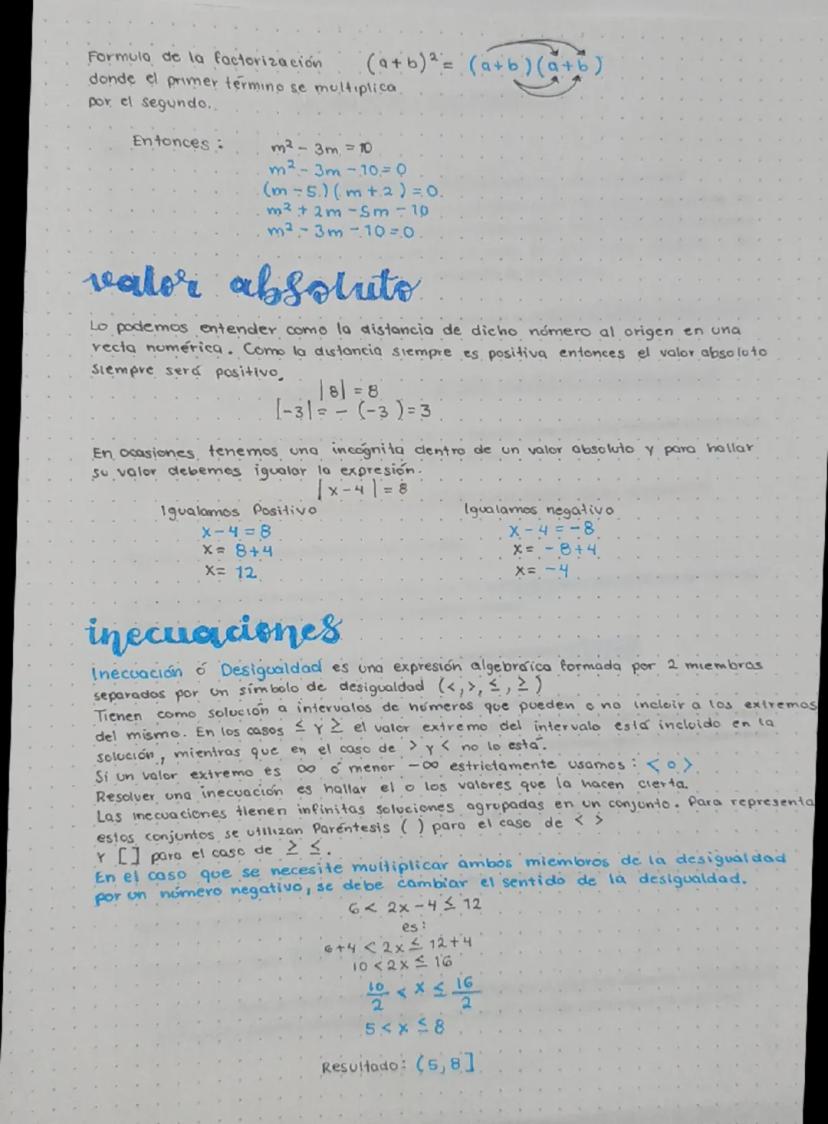 Formula de la factorización (a+b)² = (a+b)(a+b)
donde el primer término se multiplica
por el segundo.
Entonces: m² - 3m = 10
m² - 3m - 10 = 0
(m - 5)(m + 2) = 0
m² + 2m - 5m - 10
m² - 3m - 10 = 0
valor absoluto
Lo podemos entender como la distancia de dicho número al origen en una
recta numérica. Como la distancia siempre es positiva entonces el valor absoluto
siempre será positivo.
|8| = 8
|-3| = - (-3) = 3
En ocasiones tenemos una incógnita dentro de un valor absoluto y para hallar
su valor debemos igualar la expresión.
|x - 4| = 8
Igualamos Positivo Igualamos negativo
x - 4 = 8 x - 4 = -8
x = 8+4 x = -8+4
x = 12 x = -4
inecuaciones
Inecuación ó Desigualdad es una expresión algebraica formada por 2 miembros
separados por un símbolo de desigualdad (<, >, ≤, ≥)
Tienen como solución a intervalos de números que pueden o no incluir a los extremos
del mismo. En los casos ≤ y ≥ el valor extremo del intervalo está incluido en la
solución, mientras que en el caso de > y < no lo está.
Si un valor extremo es ∞ ó menor -∞ estrictamente usamos: < o >
Resolver una inecuación es hallar el o los valores que la hacen cierta.
Las inecuaciones tienen infinitas soluciones agrupadas en un conjunto. Para representa
estos conjuntos se utilizan Paréntesis ( ) para el caso de < >
Y [ ] para el caso de ≥ ≤.
En el caso que se necesite multiplicar ambos miembros de la desigualdad
por un número negativo, se debe cambiar el sentido de la desigualdad.
6 < 2x - 4 ≤ 12
es:
6+4 < 2x ≤ 12+4
10 < 2x ≤ 16
10/2 < x ≤ 16/2
5 < x ≤ 8
Resultado: (5, 8]